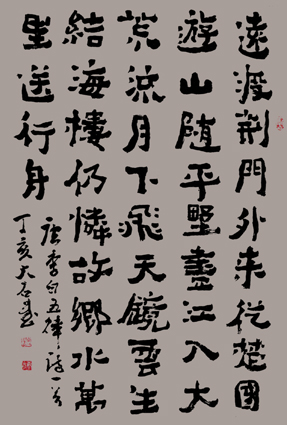 遠渡荆門外来從楚國
遊山随平墅盡江入大
荒流月下飛天鏡雲生
結海樓仍憐故鄉水萬
里送行舟
唐李白五律詩一首
丁亥大石書